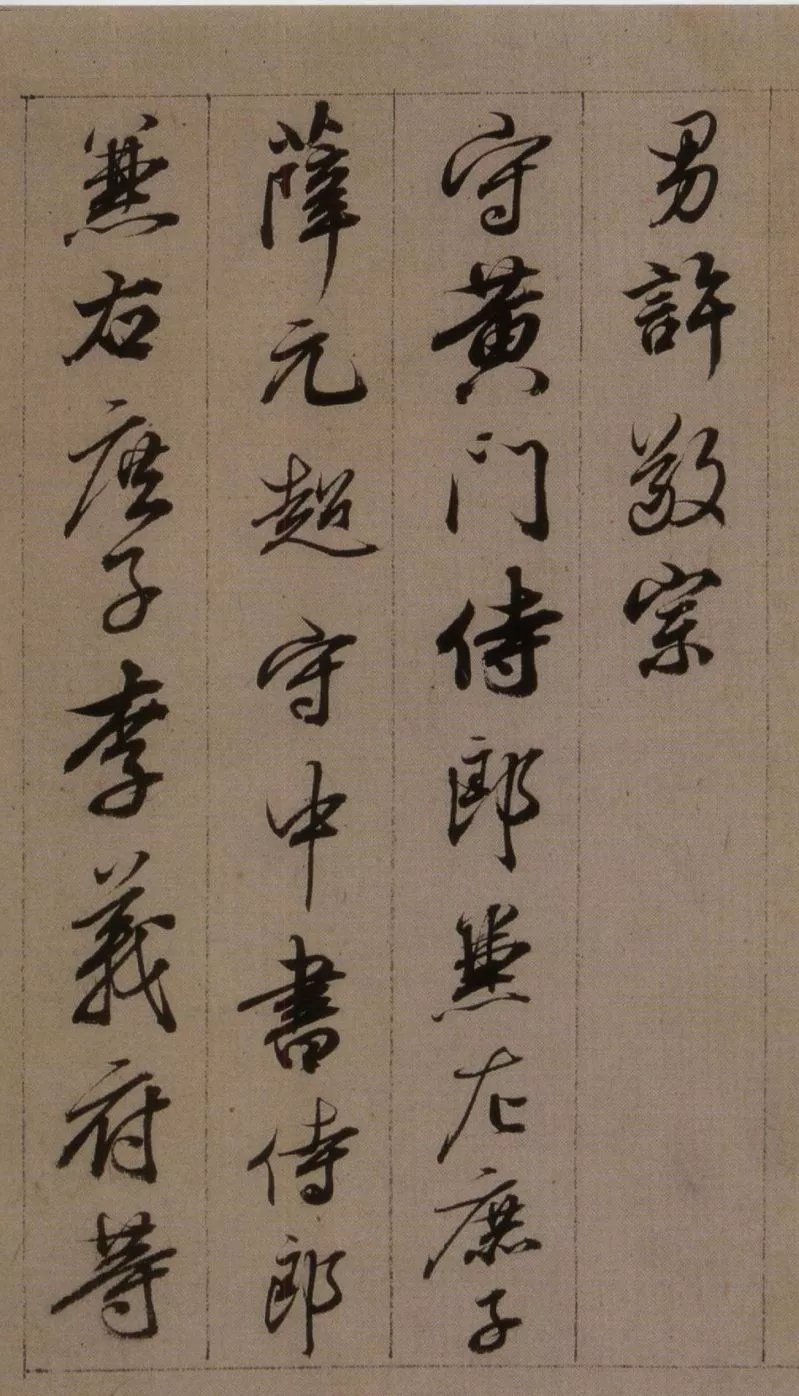 男許敬宗
守黃门侍郎兼左庶子
薛元超守中書侍郎
兼右庶子李義府等